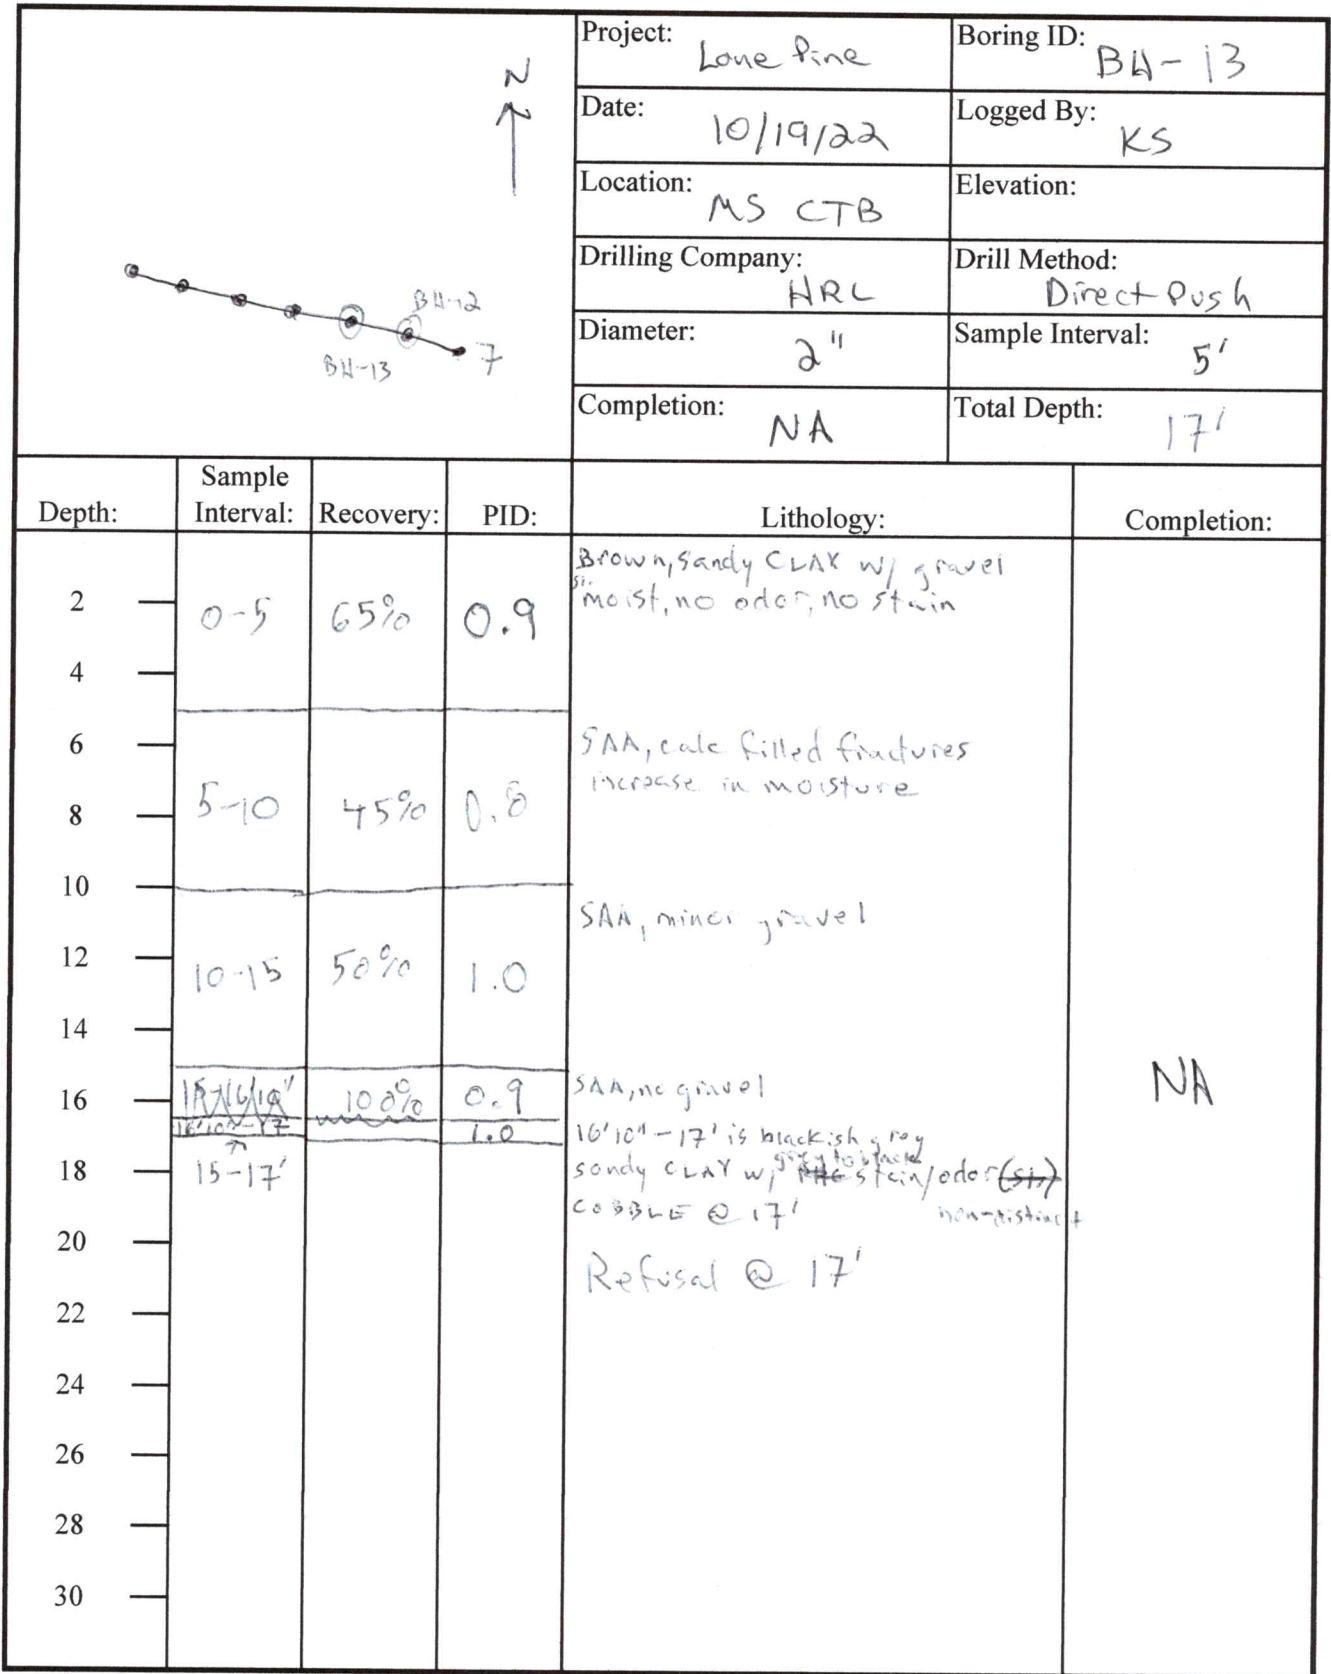 N
BH-12
BH-13
7
Project: Lone Pine
Boring ID: BH-13
Date: 10/19/22
Logged By: KS
Location: MS CTB
Elevation:
Drilling Company: HRL
Drill Method: Direct Push
Diameter: 2"
Sample Interval: 5'
Completion: NA
Total Depth: 17'
Depth: Sample Interval: Recovery: PID: Lithology: Completion:
Brown, sandy CLAY w/ gravel
sl. moist, no odor, no stain
2 0-5 65% 0.9
4
6 SAA, calc filled fractures
increase in moisture
8 5-10 45% 0.8
10
SAA, minor gravel
12 10-15 50% 1.0
14
NA
16 100% 0.9 SAA, no gravel
16'10"-17' 1.0 16'10" - 17' is blackish grey
grey to black
18 15-17' sandy CLAY w/ stain/odor (sl.)
COBBLE @ 17' non-distinct
20
Refusal @ 17'
22
24
26
28
30